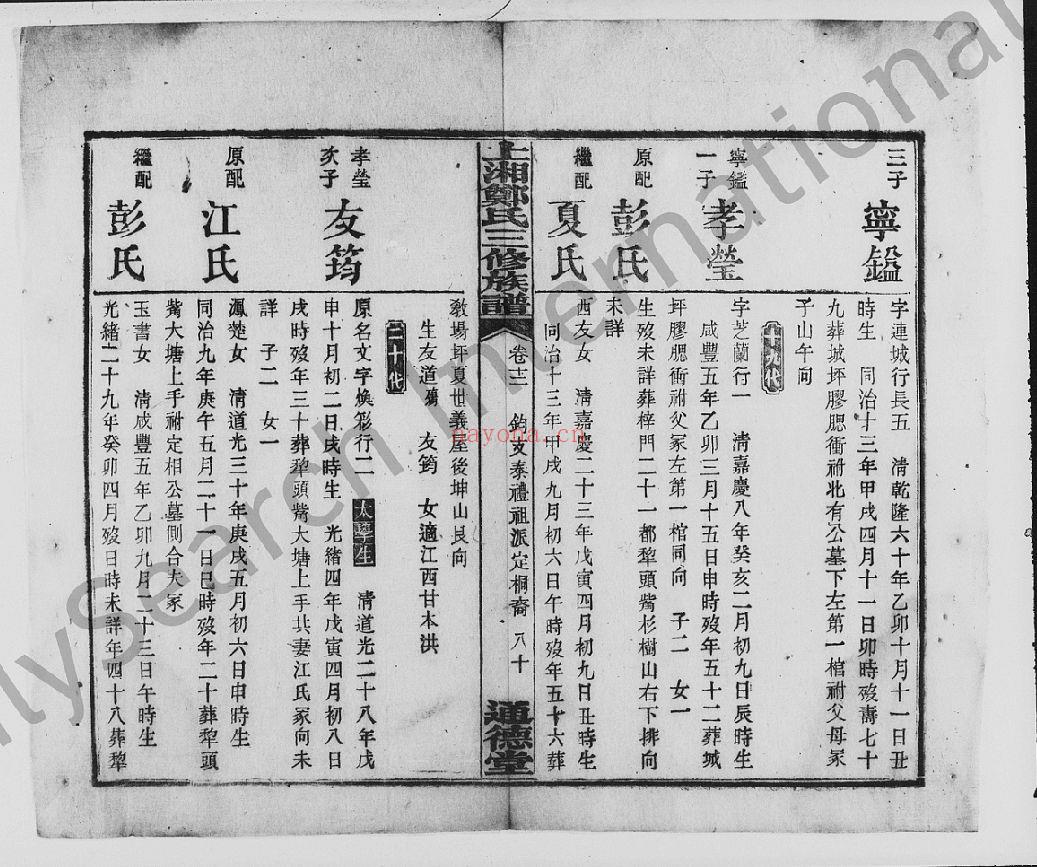 三子
寧鎰
字連城行長五　清乾隆六十年乙卯十月十一日丑
時生　同治十三年甲戌四月十一日卯時歿壽七十
九葬城坪膠腮衝祔北有公墓下左第一棺祔父母冢
子山午向
十九代
寧鎰
一子
孝瑩
字芝蘭行一　清嘉慶八年癸亥二月初九日辰時生
咸豐五年乙卯三月十五日申時歿年五十二葬城
坪膠腮衝祔父冢左第一棺同向　子二　女一
原配
彭氏
生歿未詳葬梓門二十一都犂頭觜杉樹山右下排向
未詳
繼配
夏氏
西友女　清嘉慶二十三年戊寅四月初九日丑時生
同治十三年甲戌九月初六日午時歿年五十六葬
上湘鄭氏三修族譜
卷十三
鈞支泰禮祖派定桐裔
八十
通德堂
敎場坪夏世義屋後坤山艮向
生友道殤　友筠　女適江西甘本洪
二十代
孝瑩
次子
友筠
原名文字煥彩行二　太學生　清道光二十八年戊
申十月初二日戌時生　光緒四年戊寅四月初八日
戌時歿年三十葬犂頭觜大塘上手共妻江氏冢向未
詳　子二　女一
原配
江氏
楚女　清道光三十年庚戌五月初六日申時生
同治九年庚午五月二十一日巳時歿年二十葬犂頭
觜大塘上手祔定相公墓側合夫冢
繼配
彭氏
玉書女　清咸豐五年乙卯九月二十三日午時生
光緒二十九年癸卯四月歿日時未詳年四十八葬犂
gayona.cn
lySearch International